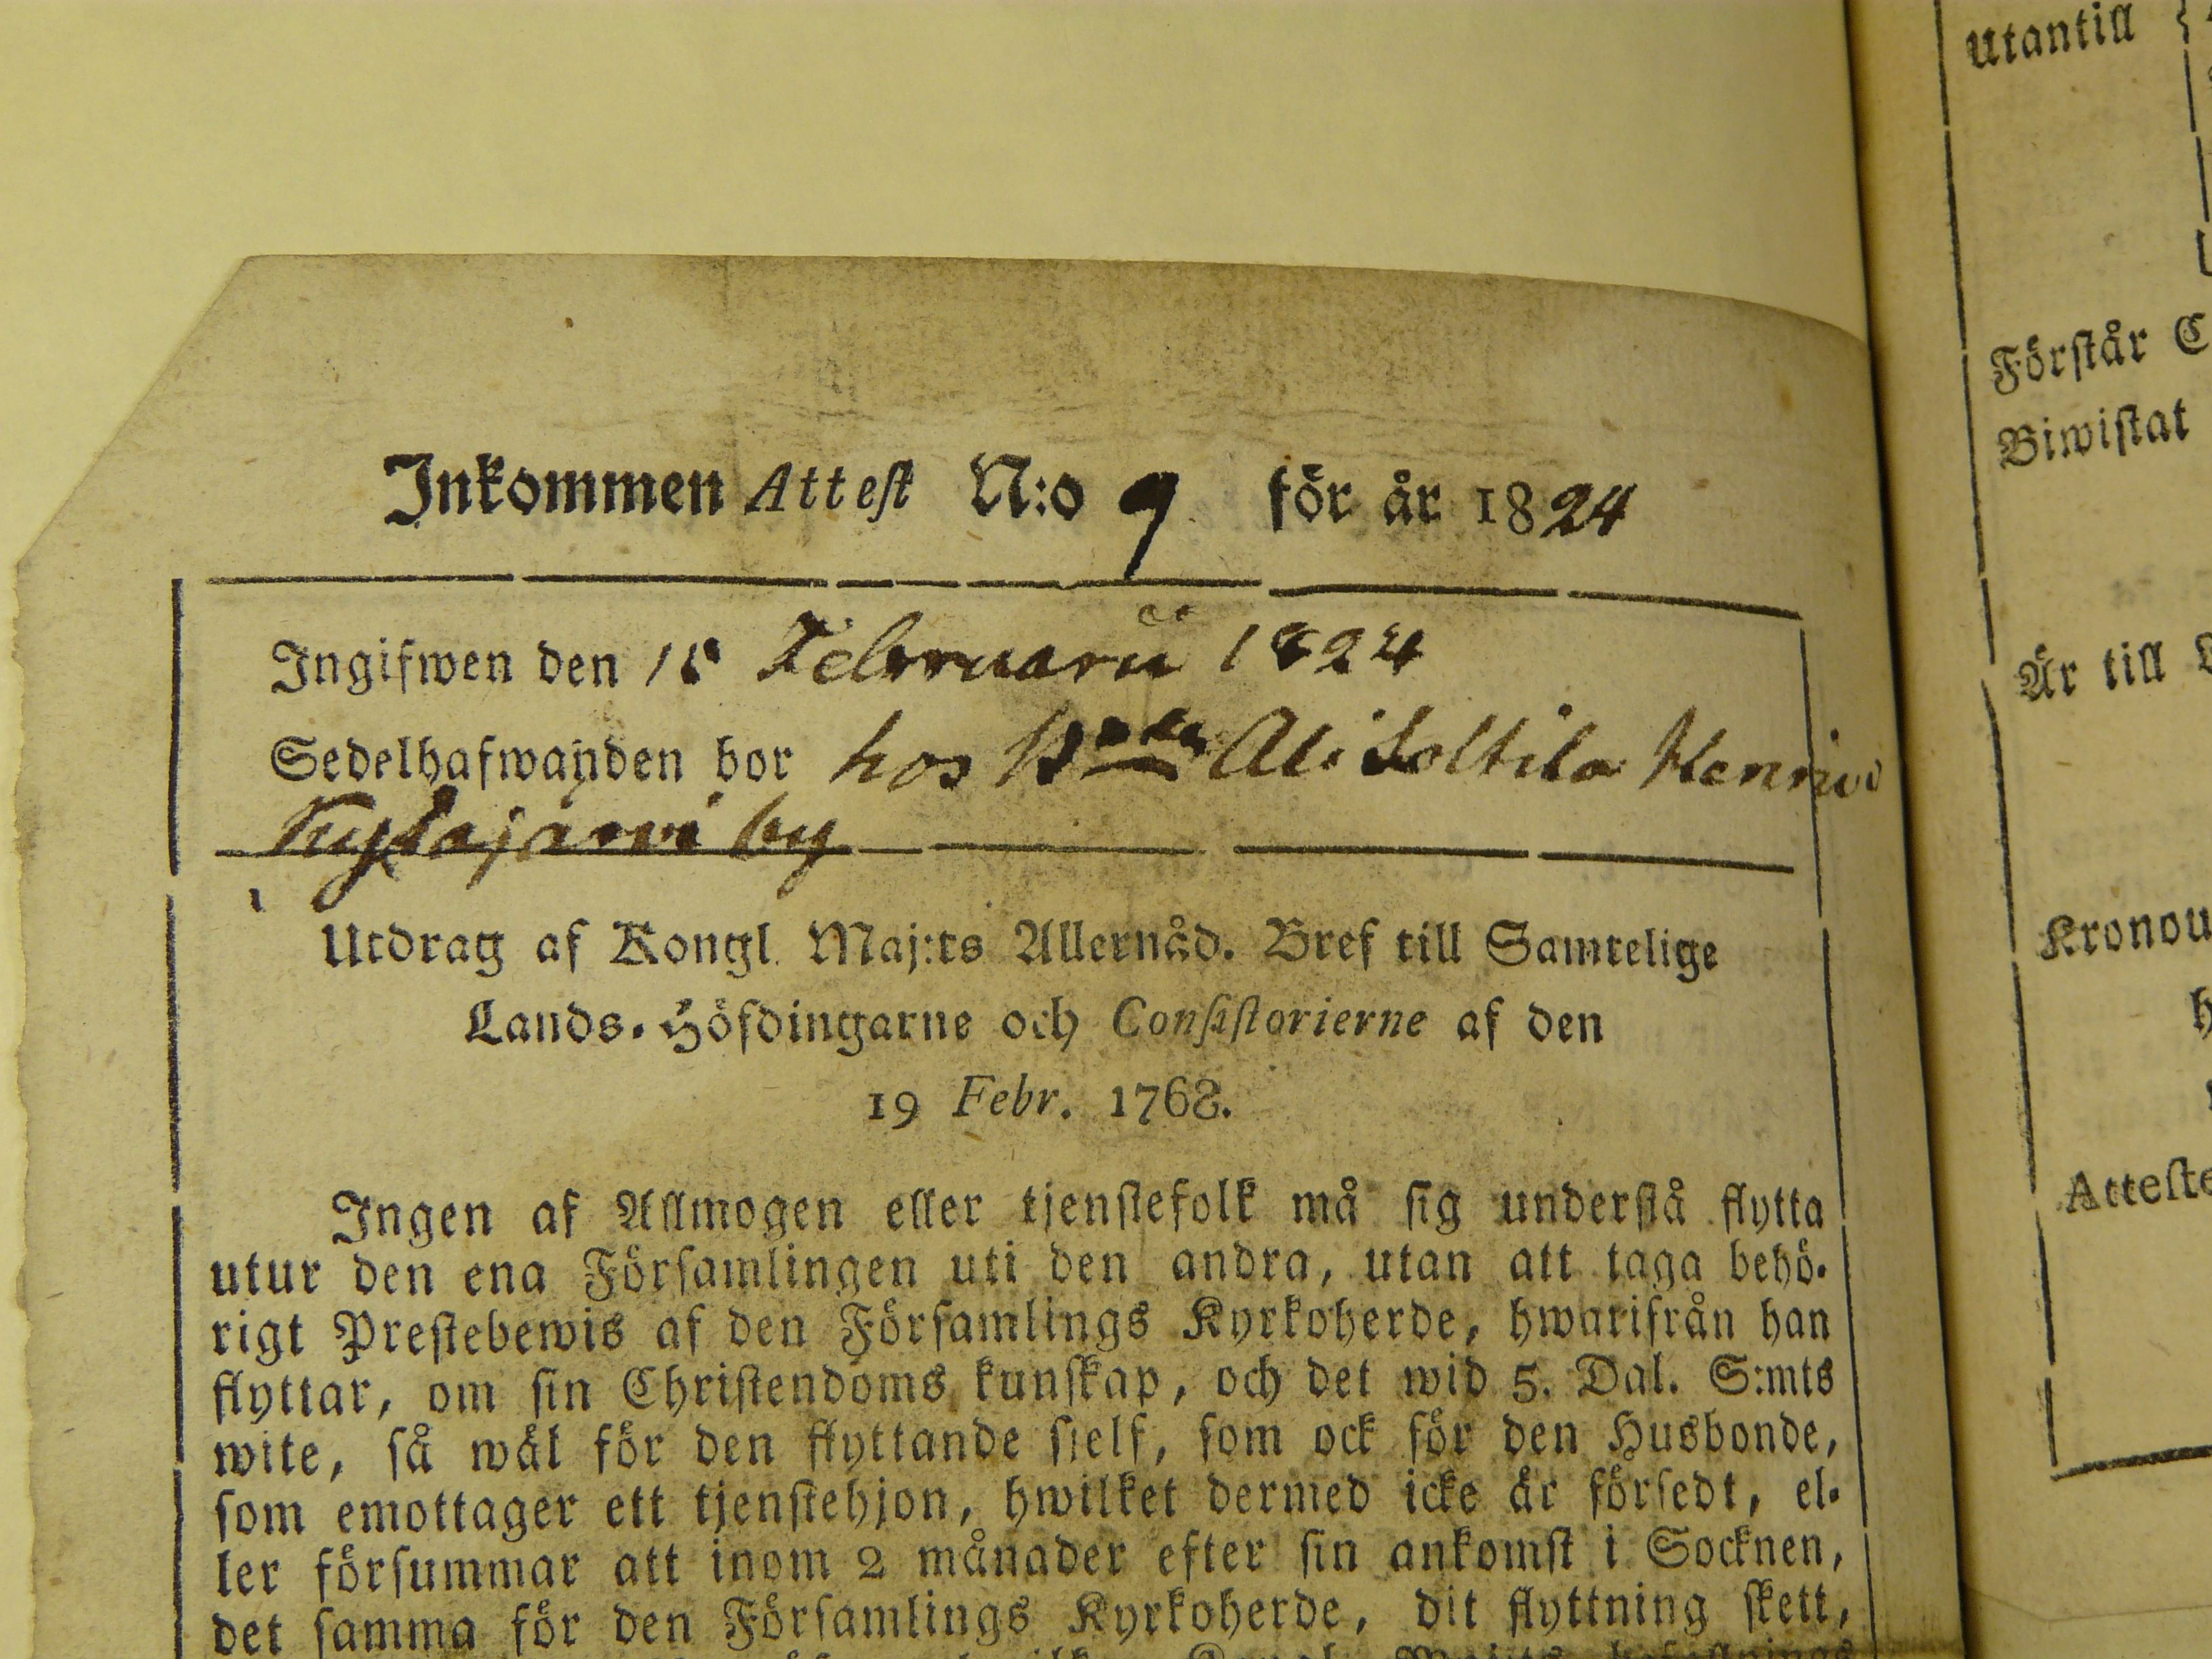 Inkommen Attest N:o 9 för år 1824
Ingifwen den Februarii 1824
Sedelhafwanden bor hos Ali Soltila Henric
i Kytäjärwi by
Utdrag af Kongl. Maj:ts Allernåd. Bref till Samtelige
Lands-Höfdingarne och Consistorierne af den
19 Febr. 1768.
Ingen af Allmogen eller tjenstefolk må sig understå flytta
utur den ena Församlingen uti den andra, utan att taga behö-
rigt Prestebewis af den Församlings Kyrkoherde, hwarifrån han
flyttar, om sin Christendoms kunskap, och det wid 5. Dal. S:mts
wite, så wäl för den flyttande sjelf, som ock för den Husbonde,
som emottager ett tjenstehjon, hwilket dermed icke är försedt, el-
ler försummar att inom 2 månader efter sin ankomst i Socknen,
det samma för den Församlings Kyrkoherde, dit flyttning skett,
Utantill
Förstår C
Biwistat
Är till
Kronou
h
Atteste